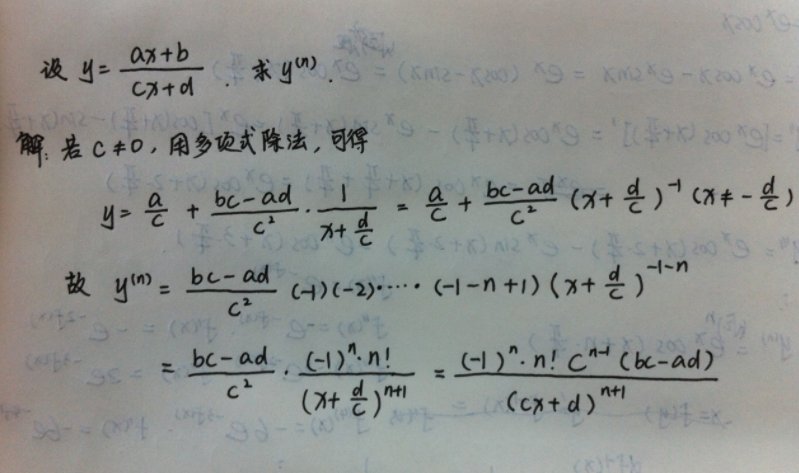 设 y = \frac{ax+b}{cx+d} . 求 y^{(n)}.
解: 若 c≠0, 用多项式除法, 可得
y = \frac{a}{c} + \frac{bc-ad}{c^2} · \frac{1}{x+\frac{d}{c}} = \frac{a}{c} + \frac{bc-ad}{c^2} (x+\frac{d}{c})^{-1} (x≠-\frac{d}{c})
故 y^{(n)} = \frac{bc-ad}{c^2} (-1)(-2)····· (-1-n+1) (x+\frac{d}{c})^{-1-n}
= \frac{bc-ad}{c^2} · \frac{(-1)^n · n!}{(x+\frac{d}{c})^{n+1}} = \frac{(-1)^n · n! c^{n-1} (bc-ad)}{(cx+d)^{n+1}}